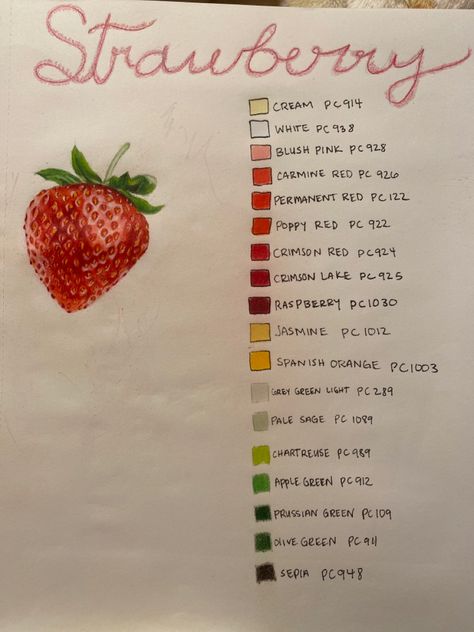 Strawberry
CREAM PC914
WHITE PC938
BLUSH PINK PC928
CARMINE RED PC926
PERMANENT RED PC122
POPPY RED PC922
CRIMSON RED PC924
CRIMSON LAKE PC925
RASPBERRY PC1030
JASMINE PC1012
SPANISH ORANGE PC1003
GREY GREEN LIGHT PC289
PALE SAGE PC1089
CHARTREUSE PC989
APPLE GREEN PC912
PRUSSIAN GREEN PC109
OLIVE GREEN PC911
SEPIA PC948